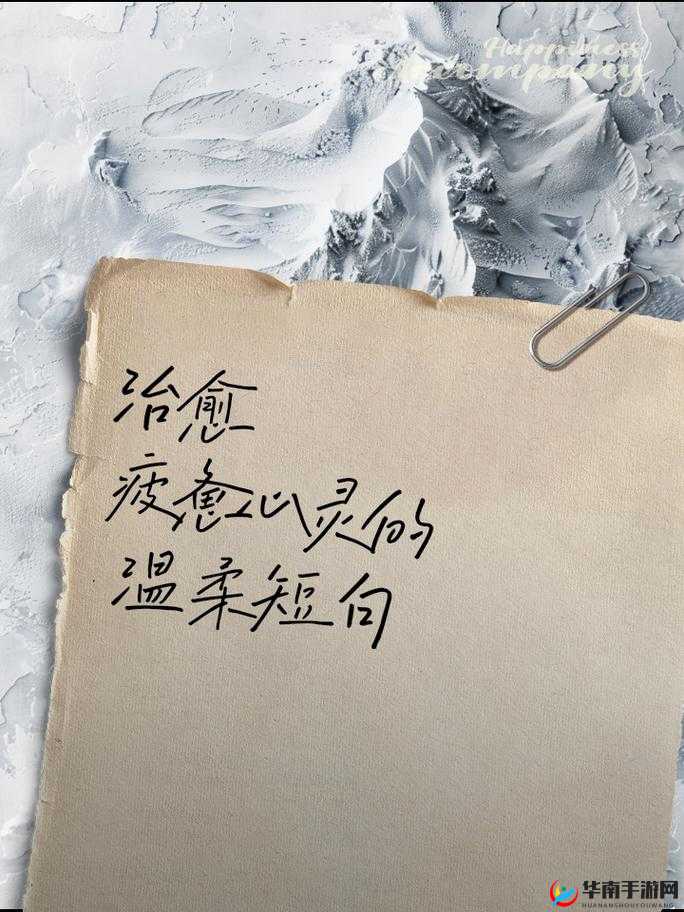 Happiness
治愈
疲惫心灵的
温柔短句
华南手游网
HUANANSHOUYOUWANG